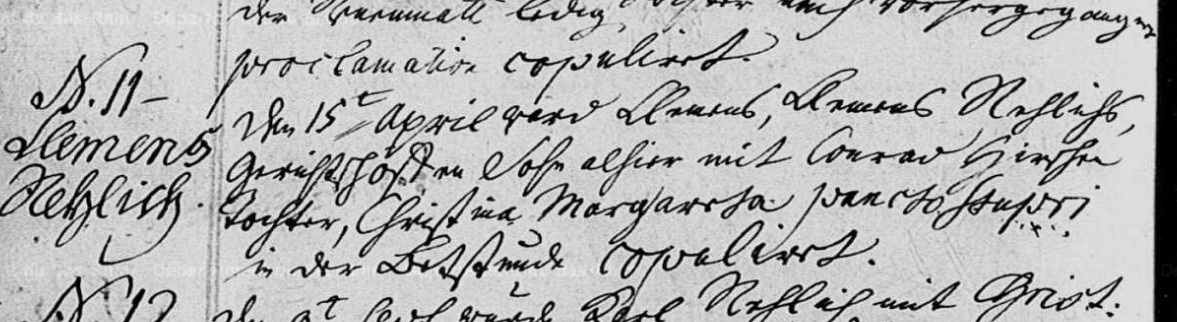 der ledig Tochter nach vorhergegangener
proclamation copulirt.
N. 11 –
Clemens
Nehlich.
Den 15t April ward Clemens, Clemens Nehlichs,
Gerichtschöffen Sohn alhier mit Conrad Hirschen
Tochter, Christina Margaretha puncto stupri
in der Betstunde copulirt.
N. 12
Den wurde Karl Nehlich mit Christ: